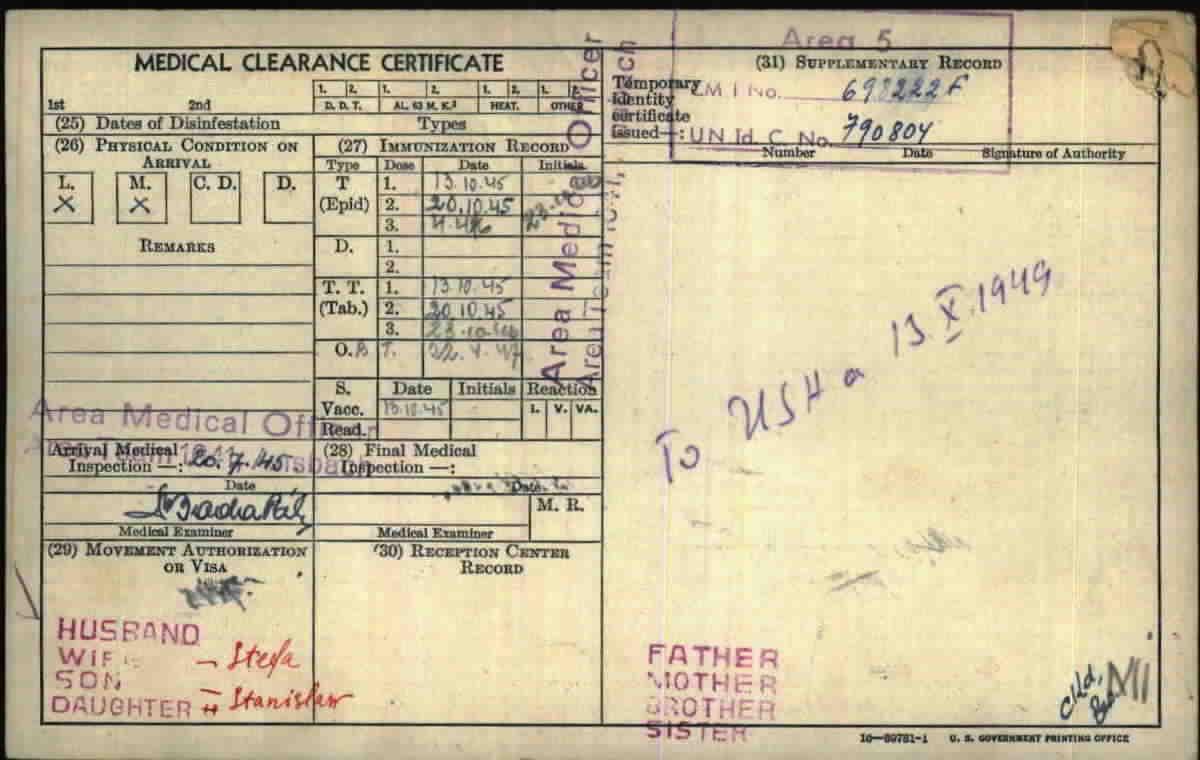 MEDICAL CLEARANCE CERTIFICATE
1. 2. 1. 2. 1. 2. 1.
1st 2nd D. D. T. AL. 63 M. K.³ HEAT. OTHER
(25) Dates of Disinfestation Types
(26) PHYSICAL CONDITION ON ARRIVAL
L. M. C. D. D.
X X
REMARKS
(27) IMMUNIZATION RECORD
Type Dose Date Initials
T 1. 13.10.45
(Epid) 2. 20.10.45
3.
D. 1.
2.
T. T. 1. 13.10.45
(Tab.) 2. 20.10.45
3.
O. T. 22.4.47
S. Date Initials Reaction
Vacc. 13.10.45 I. V. VA.
Read.
Area Medical Officer
Area Medical
Arrival Medical
Inspection —: 20.7.45
Date
Medical Examiner
(28) Final Medical
Inspection —:
Date
M. R.
Medical Examiner
(29) MOVEMENT AUTHORIZATION
OR VISA
HUSBAND
WIFE – Stefa
SON
DAUGHTER = Stanisław
(30) RECEPTION CENTER
RECORD
Area 5
(31) SUPPLEMENTARY RECORD
Temporary
Identity
certificate
issued—:
M I No.
UN Id. C. No. 790804
Number Date Signature of Authority
To USA 13 X.1949
FATHER
MOTHER
BROTHER
SISTER
16—89781-1 U. S. GOVERNMENT PRINTING OFFICE